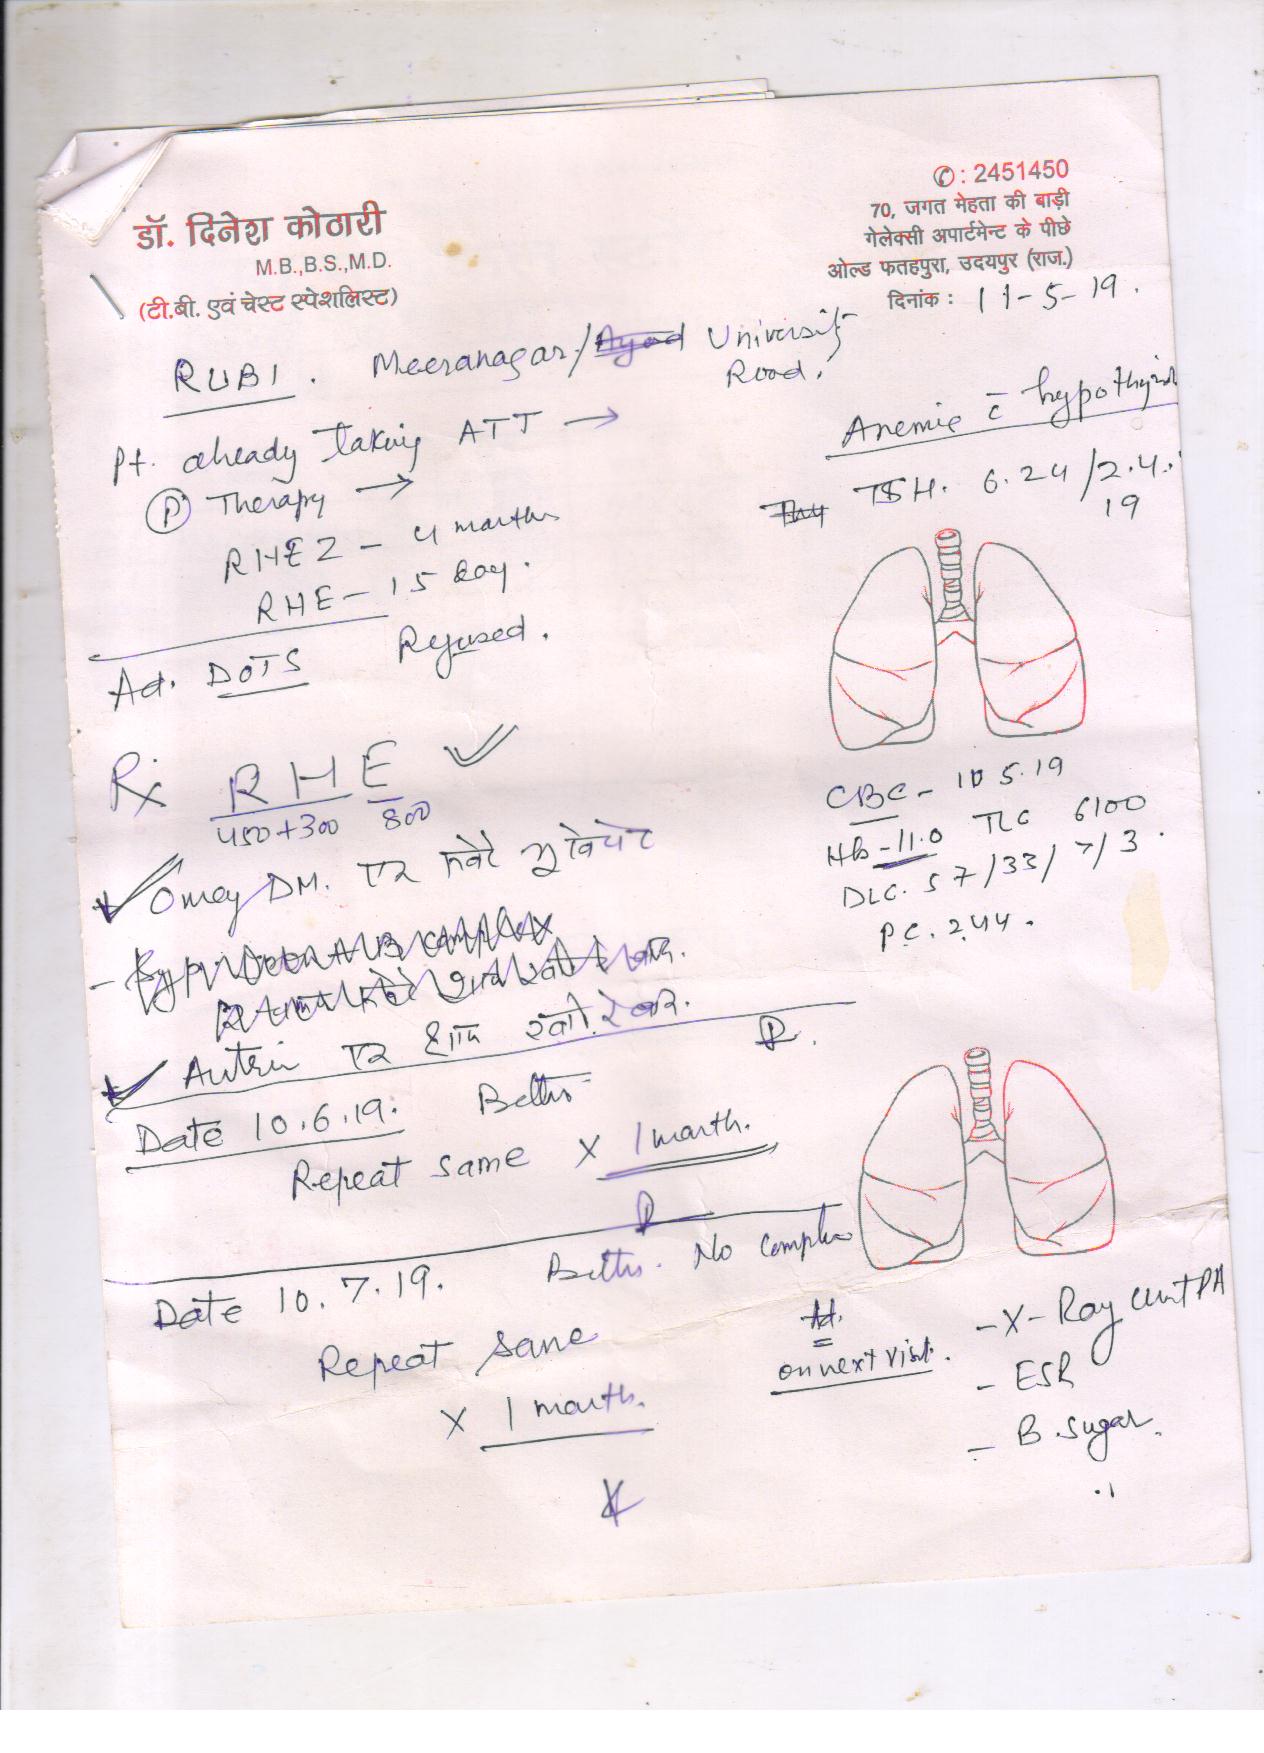 ✆ : 2451450
70, जगत मेहता की बाड़ी
गेलेक्सी अपार्टमेन्ट के पीछे
ओल्ड फतहपुरा, उदयपुर (राज.)
दिनांक : 11-5-19.
डॉ. दिनेश कोठारी
M.B.,B.S.,M.D.
(टी.बी. एवं चेस्ट स्पेशलिस्ट)
RUBI. Meeranagar/ University
Road.
Pt. already taking ATT →
Ⓟ Therapy →
RHEZ - 4 months
RHE - 15 day.
Ad. DOTS Refused.
Anemic c̄ hypothyroid
TSH. 6.24 / 2.4.
19
Rx RHE
450+300 800
Omez DM. एक
Autrin एक
CBC - 10 5.19
Hb - 11.0 TLC 6100
DLC. 57/33/7/3.
P.C. 2.44.
Date 10.6.19. Better
Repeat same X 1 month.
Date 10.7.19. Better. No
Repeat same
X 1 month.
Ad.
on next visit.
- X-Ray PA
- ESR
- B. sugar.